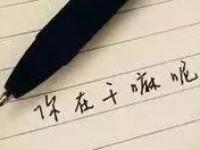 你在干嘛呢